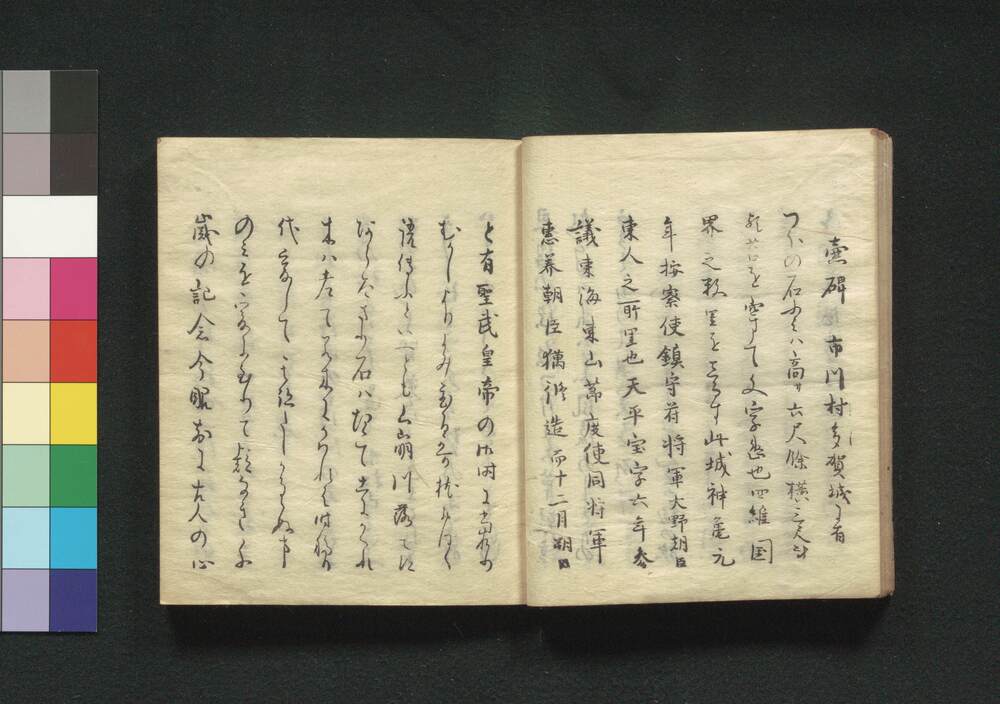 壺碑 市川村多賀城ニ有
つほの石ふみハ高サ六尺餘横三尺計
歟苔を穿て文字幽也四維国
界之数里をしるす此城神亀元
年按察使鎮守府将軍大野朝臣
東人之所里也天平宝字六年参
議東海東山節度使同将軍
恵美朝臣獦修造而十二月朔日
と有聖武皇帝の御時に当れり
むかしよりよみ置る哥枕おほく
語傳ふといへとも山崩川落て道
あらたまり石ハ埋て土にかくれ
木ハ老て若木にかはれハ時移り
代変して其跡たしかならぬ事
のミを爰に至りて疑なき千
歳の記念今眼前に古人の心